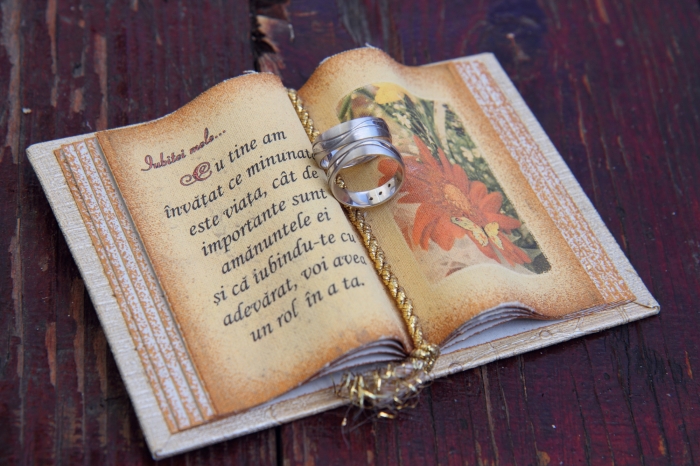 Iubitei mele...
Cu tine am
învățat ce minunat
este viața, cât de
importante sunt
amănuntele ei
și că iubindu-te cu
adevărat, voi avea
un rol în a ta.